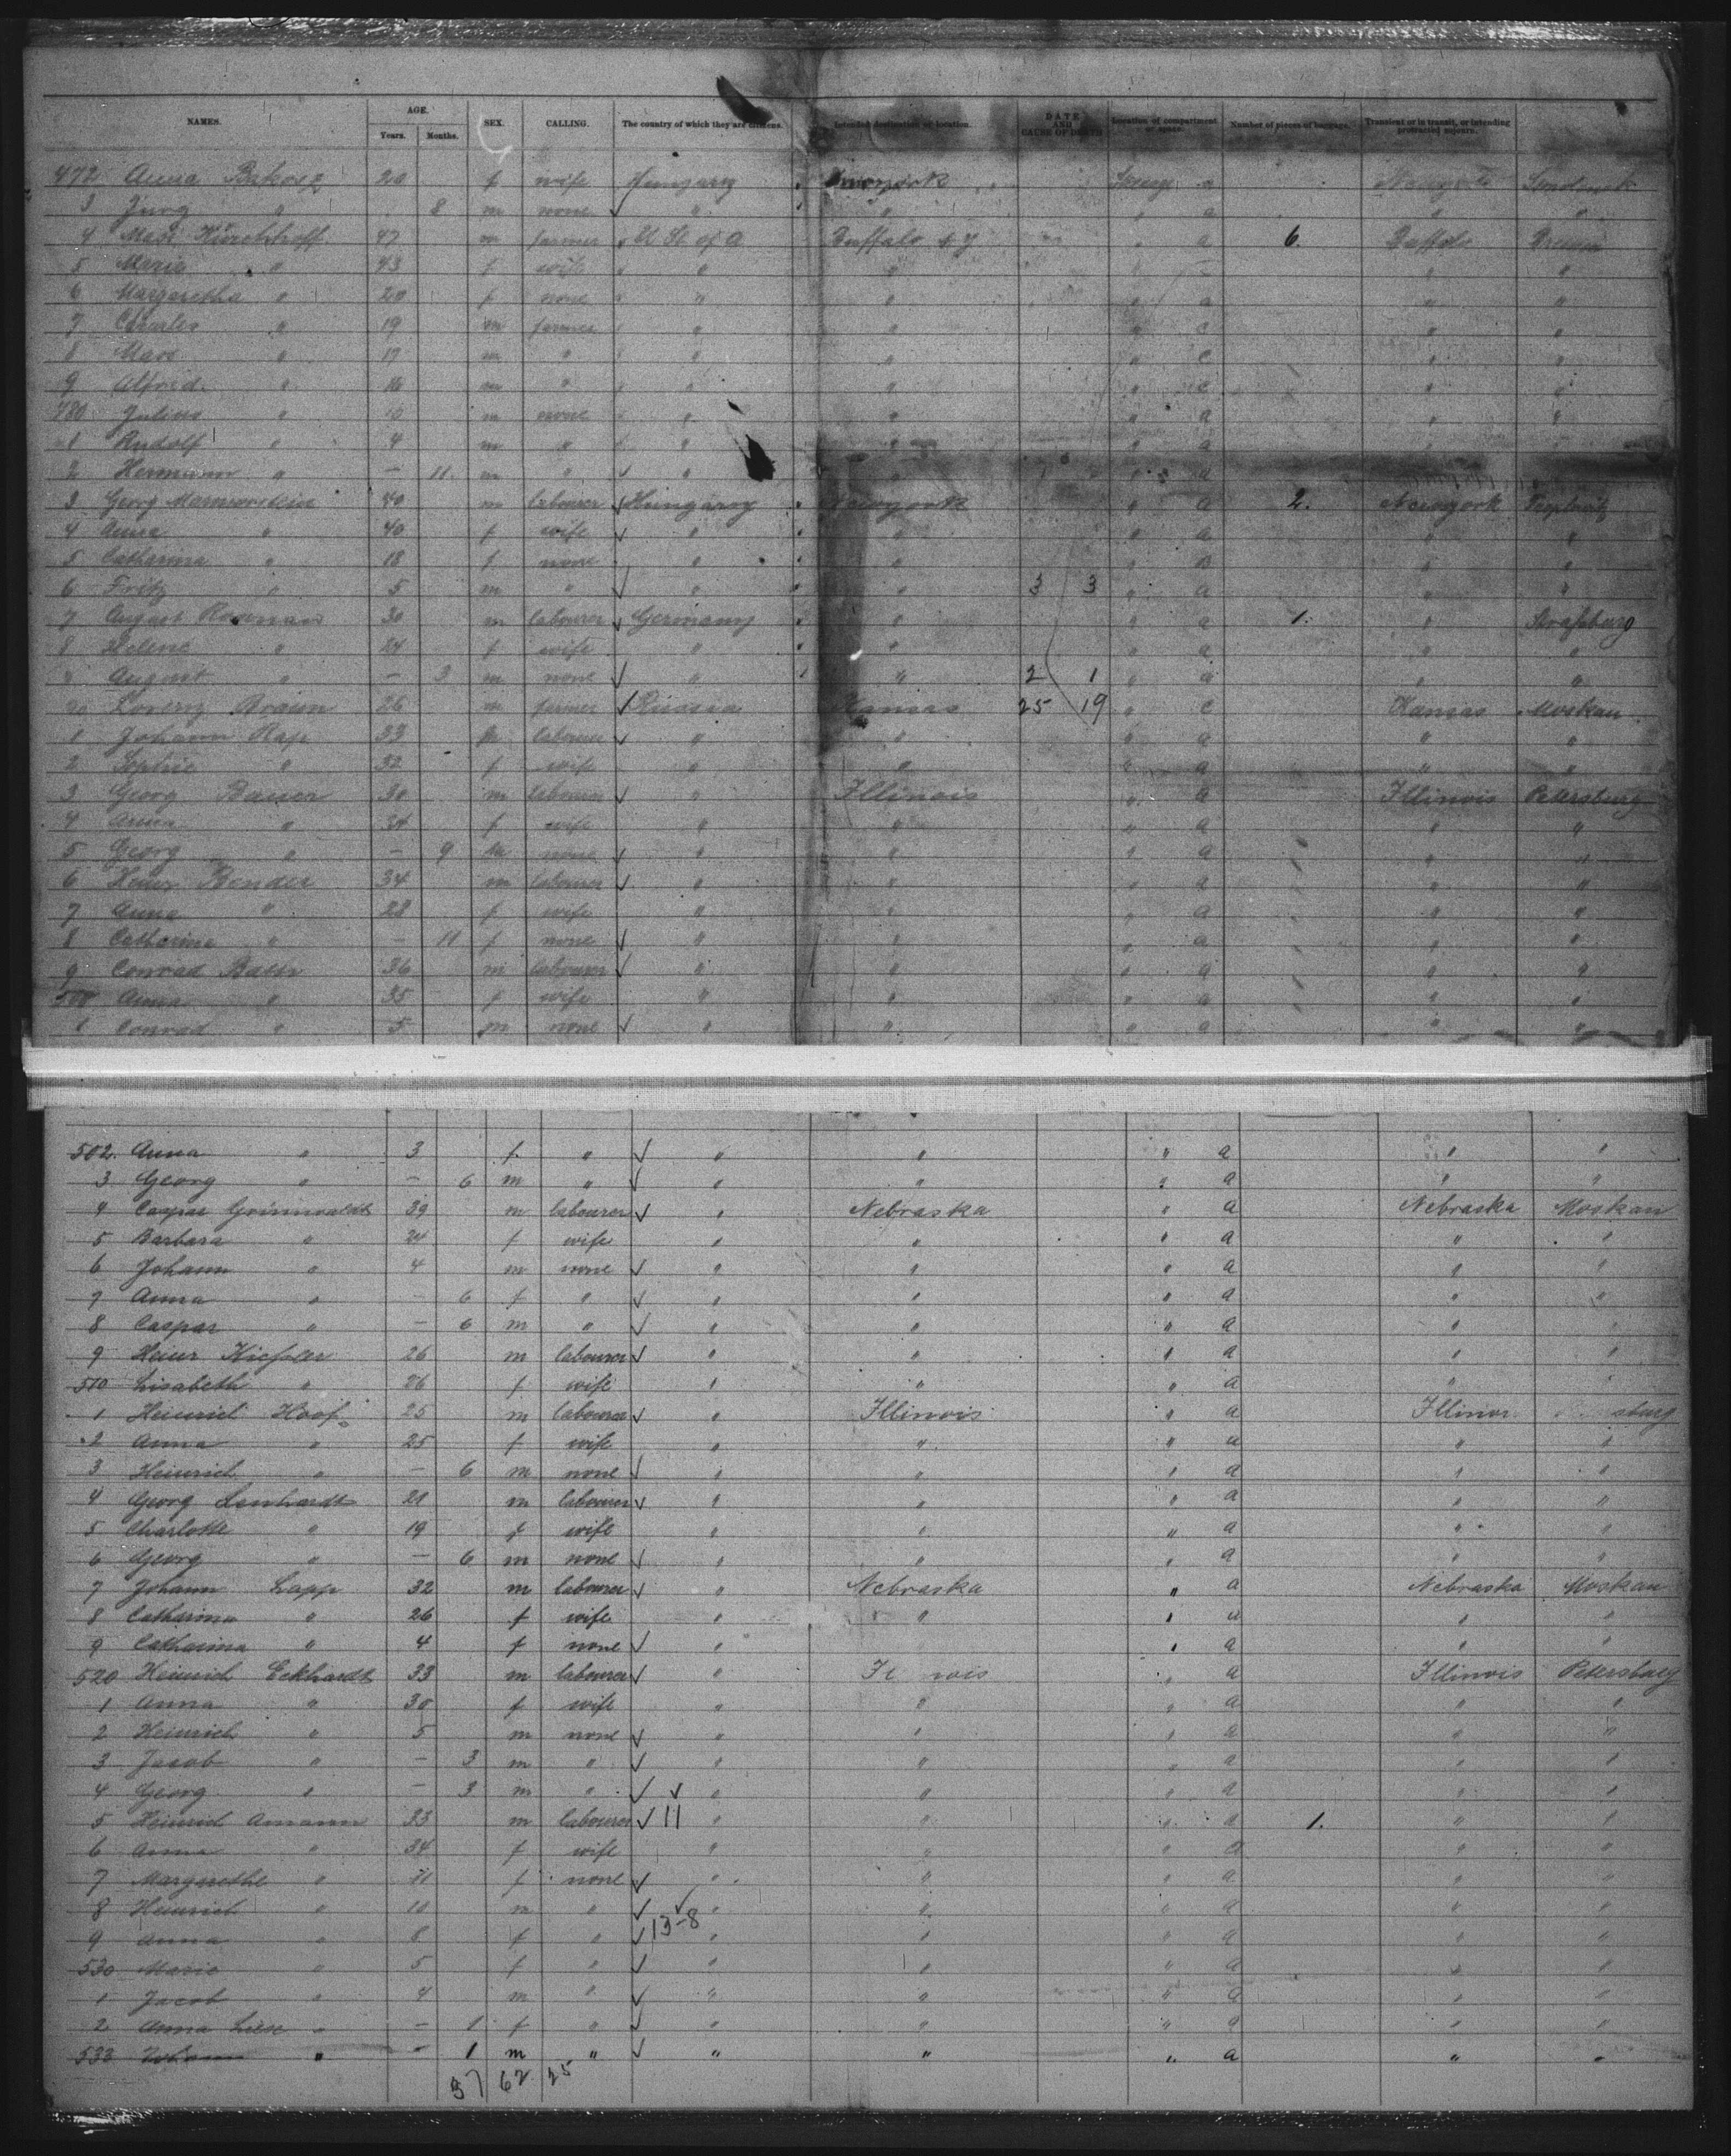 NAMES. AGE. Years. Months. SEX. CALLING. The country of which they are citizens. Intended destination or location. DATE AND CAUSE OF DEATH Location of compartment or space. Number of pieces of baggage. Transient or in transit, or intending protracted sojourn.
472 Anna 20 f wife Hungary Newyork a
3 Jurg " 8 m none " " " a " "
4 47 m farmer U St of a Buffalo N Y " a 6. Buffalo Bremen
5 Marie " 43 f wife " " " " "
6 Margaretha " 20 f none " " " a " "
7 Charles " 19 m farmer " " " c " "
8 " 17 m " " " " c " "
9 Alfred " 16 m " " " " c " "
480 Julius " 10 m none " " " a " "
1 Rudolf " 4 m " " " " a " "
2 Hermann " – 11. m " " " " a
3 Georg 40 m labourer Hungary Newyork " a 2. Newyork
4 Anna " 40 f wife " " " a " "
5 Catharina " 18 f none " " " " "
6 Fritz " 5 m " " " 3 3 " a " "
7 August 30 m labourer Germany " " a 1. " Straßburg
8 Helene " 24 f wife " " " a " "
9 August " – 3 m none " " 2 1 " a " "
90 Braun 26 m farmer Russia Kansas 25 19 " c Kansas Moskau
1 Johann Rap 33 m labourer " " " a " "
2 Sophie " 32 f wife " " " a " "
3 Georg Bauer 30 m labourer " Illinois " a Illinois Petersburg
4 Anna " 34 f wife " " " a " "
5 Georg " – 9 m none " " " a " "
6 Heinr Bender 34 m labourer " " " a " "
7 Anna " 28 f wife " " " a " "
8 Catharina " – 11 f none " " " a " "
9 Conrad 36 m labourer " " " a " "
500 Anna " 35 f wife " " " a " "
1 Conrad " 5 m none " " " a " "
502. Anna " 3 f. " " " " a " "
3 Georg " – 6 m " " " " a " "
4 Caspar Grünwaldt 39 m labourer " Nebraska " a Nebraska Moskau
5 Barbara " 24 f wife " " " a " "
6 Johann " 4 m none " " " a " "
7 Anna " – 6 f " " " " a " "
8 Caspar " – 6 m " " " " a " "
9 Heinr Kießler 26 m labourer " " " a " "
510 Lisabeth " 26 f wife " " " a " "
1 Heinrich Hoof 25 m labourer " Illinois " a
2 Anna " 25 f wife " " " a " "
3 Heinrich " – 6 m none " " " a " "
4 Georg Lenhardt 21 m labourer " " " a " "
5 Charlotte " 19 f wife " " " a " "
6 Georg " – 6 m none " " " a " "
7 Johann Lapp 32 m labourer " Nebraska " a Nebraska Moskau
8 Catharina " 26 f wife " " " a " "
9 Catharina " 4 f none " " " a " "
520 Heinrich Eckhardt 33 m labourer " " a Illinois Petersburg
1 Anna " 30 f wife " " " a " "
2 Heinrich " 5 m none " " " a " "
3 Jacob " – 3 m " " " " a " "
4 Georg " – 3 m " " " " a " "
5 Heinrich Amann 33 m labourer 11 " " " a 1. " "
6 Anna " 34 f wife " " " a " "
7 Margarethe " 11 f none " " " a " "
8 Heinrich " 10 m " " " " a " "
9 Anna " 8 f " 13-8 " " " a " "
530 Marie " 5 f " " " " a " "
1 Jacob " 4 m " " " " a " "
2 Anna Liese " – 1 f " " " " a " "
533 Johann " – 1 m " " " " a " "
37 62 25